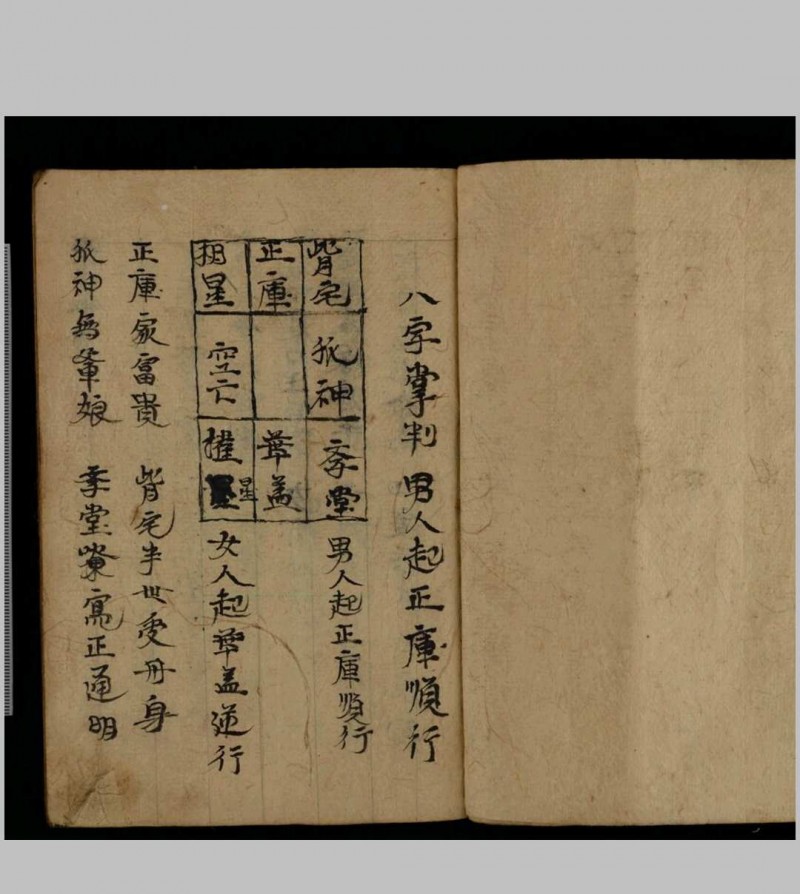 八字掌判 男人起正庫順行
背宅 孤神 李堂 男人起正庫順行
正庫 華盖
空亡 權星 女人起華盖逆行
正庫家富貴 背宅半世受丹身
孤神無輩娘 李堂寮寫正通明